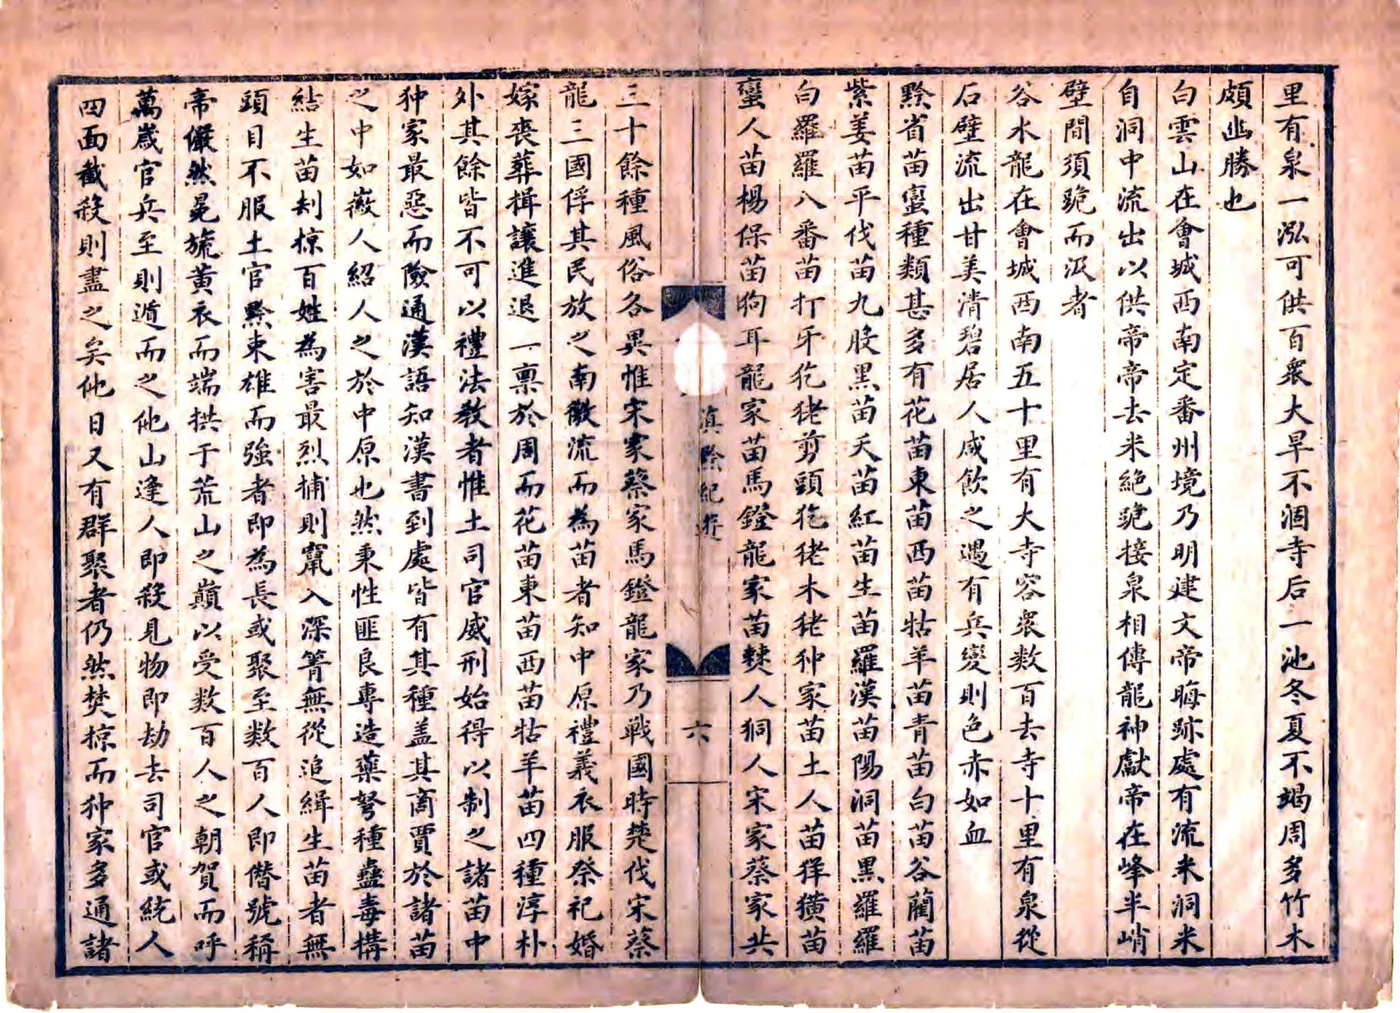 里有泉一泓可供百衆大旱不涸寺后一池冬夏不竭周多竹木
頗幽勝也
白雲山在會城西南定番州境乃明建文帝晦跡處有流米洞米
自洞中流出以供帝帝去米絕跪接泉相傳龍神獻帝在峰半峭
壁間須跪而汲者
谷水龍在會城西南五十里有大寺容衆数百去寺十里有泉從
石壁流出甘美清碧居人咸飲之遇有兵變則色赤如血
黔省苗蠻種類甚多有花苗東苗西苗牯羊苗青苗白苗谷藺苗
紫姜苗平伐苗九股黑苗夭苗紅苗生苗羅漢苗陽洞苗黑羅羅
白羅羅八番苗打牙犵狫剪頭犵狫木狫狆家苗土人苗徉獚苗
蠻人苗楊保苗狗耳龍家苗馬鐙龍家苗僰人狪人宋家蔡家共
滇黔紀遊
六
三十餘種風俗各異惟宋家蔡家馬鐙龍家乃戰國時楚伐宋蔡
龍三國俘其民放之南徼流而為苗者知中原禮義衣服祭祀婚
嫁喪葬揖讓進退一禀於周而花苗東苗西苗牯羊苗四種淳朴
外其餘皆不可以禮法教者惟土司官威刑始得以制之諸苗中
狆家最惡而險通漢語知漢書到處皆有其種盖其商賈於諸苗
之中如徽人紹人之於中原也然秉性匪良專造藥弩種蠱毒構
結生苗刦掠百姓為害最烈捕則竄入深箐無從追緝生苗者無
頭目不服土官黔東雄而強者即為長或聚至数百人即僣號稱
帝儼然冕旒黄衣而端拱于荒山之巔以受数百人之朝賀而呼
萬歲官兵至則遁而之他山逢人即殺見物即劫去司官或統人
四面截殺則盡之矣他日又有群聚者仍然焚掠而狆家多通諸